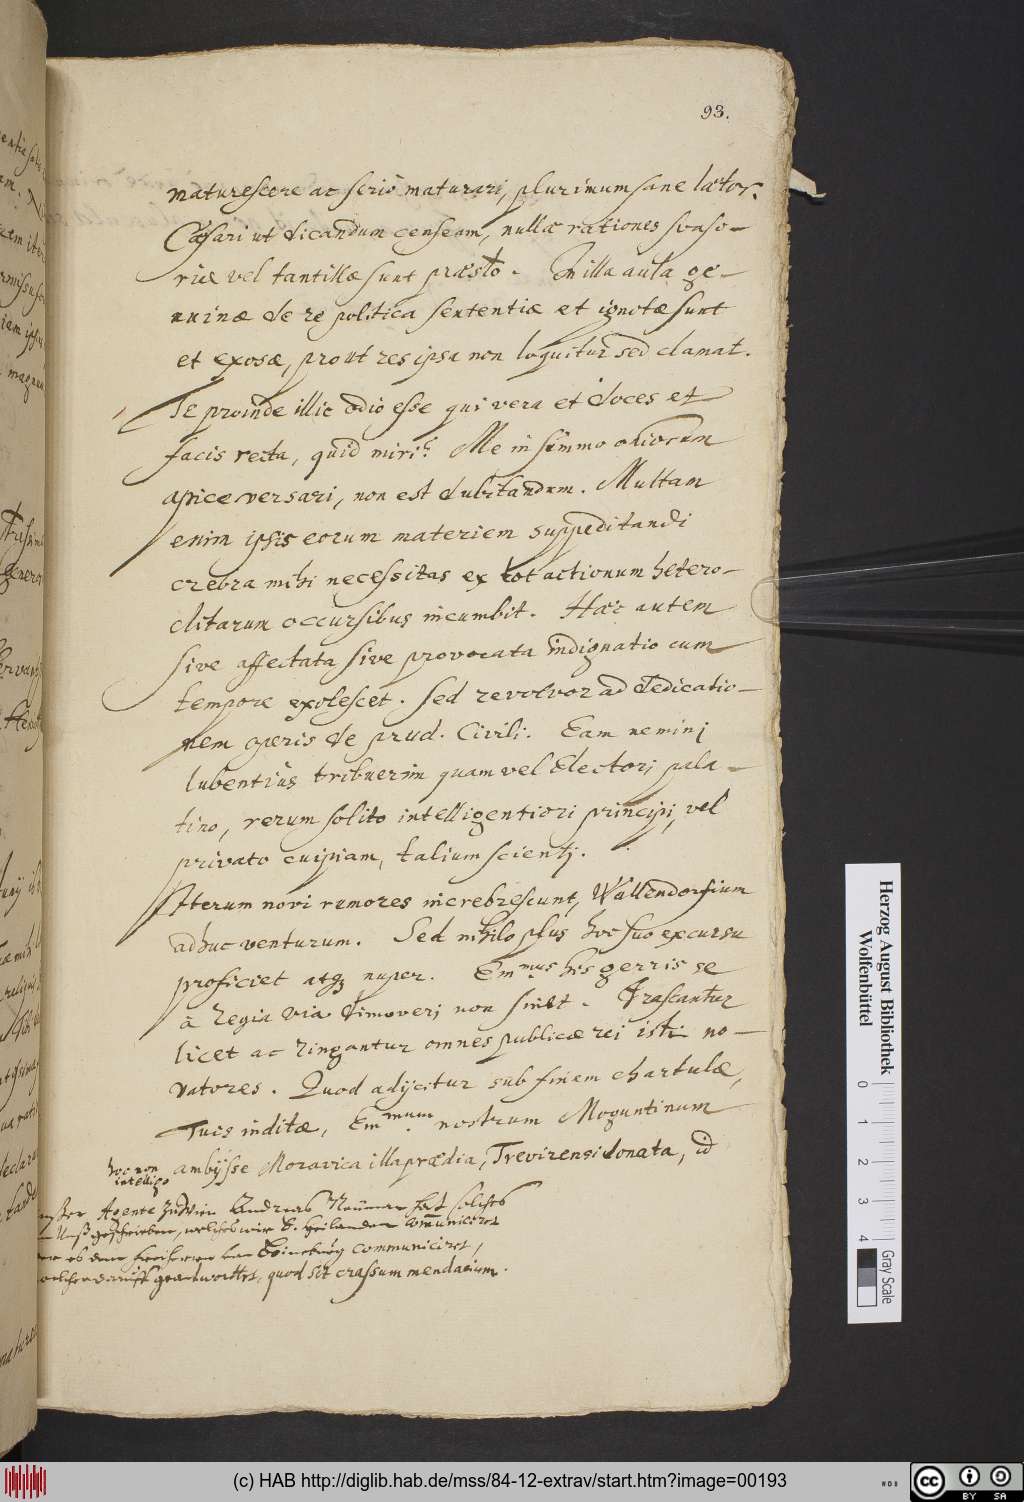 93.
maturescere ac serio maturari, plurimum sane lætor.
Cæsari ut dicandum censeam, nullæ rationes svaso-
riæ vel tantillæ sunt præsto. In illa aula ge-
nuinæ de re politica sententiæ et ignotæ sunt
et exosæ, prout res ipsa non loquitur sed clamat.
Te proinde illic odio esse qui vera et doces et
facis recta, quid miri? Me in summo odiorum
apice versari, non est dubitandum. Multam
enim ipsis eorum materiem suppeditandi
crebra mihi necessitas ex tot actionum hetero-
clitarum occursibus incumbit. Hæc autem
sive affectata sive provocata indignatio cum
tempore exolescet. Sed revolvor ad dedicatio-
nem operis de prud. Civili. Eam nemini
lubentius tribuerim quam vel Electori pala-
tino, rerum solito intelligentiori principi, vel
privato cuipiam, talium scienti.
Iterum novi rumores increbrescunt, Wallendorfium
adhuc venturum. Sed nihilo plus hoc suo excursu
proficiet atq3 nuper. Em.mus his gerris se
à regia via dimoveri non sinet. Irascantur
licet ac ringantur omnes publicæ rei isti no-
vatores. Quod adijcitur sub finem chartulæ,
Tuis inditæ, Em.mum nostrum Moguntinum
hoc non intelligo
ambijsse Moravica illa prædia, Trevirensi donata, id
Agente zu Wien Andreas Neuman hat solches
Unß geschrieben, welches wir communiciret
Boineburg communiciret,
welcher darauff geantwortet, quod sit crassum mendacium.
Herzog August Bibliothek
Wolfenbüttel
0 1 2 3 4
Gray Scale
(c) HAB http://diglib.hab.de/mss/84-12-extrav/start.htm?image=00193
cc BY SA